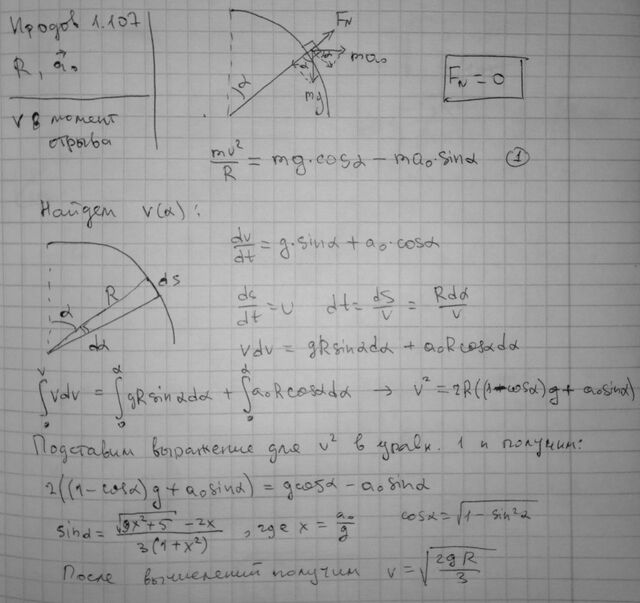 Иродов 1.107
R, a⃗₀
v в момент
отрыва
α
F_N
ma₀
α
mg
F_N = 0
mv²/R = mg·cosα − ma₀·sinα ①
Найдем v(α):
dv/dt = g·sinα + a₀·cosα
R
ds
α
dα
ds/dt = v dt = dS/v = Rdα/v
vdv = gRsinαdα + a₀Rcosαdα
∫₀ᵛ vdv = ∫₀^α gRsinαdα + ∫₀^α a₀Rcosαdα → v² = 2R((1−cosα)g + a₀sinα)
Подставим выражение для v² в уравн. 1 и получим:
2((1−cosα)g + a₀sinα) = gcosα − a₀sinα
sinα = (√(9x²+5) − 2x)/(3(1+x²)), где x = a₀/g cosα = √(1−sin²α)
После вычислений получим v = √(2gR/3)